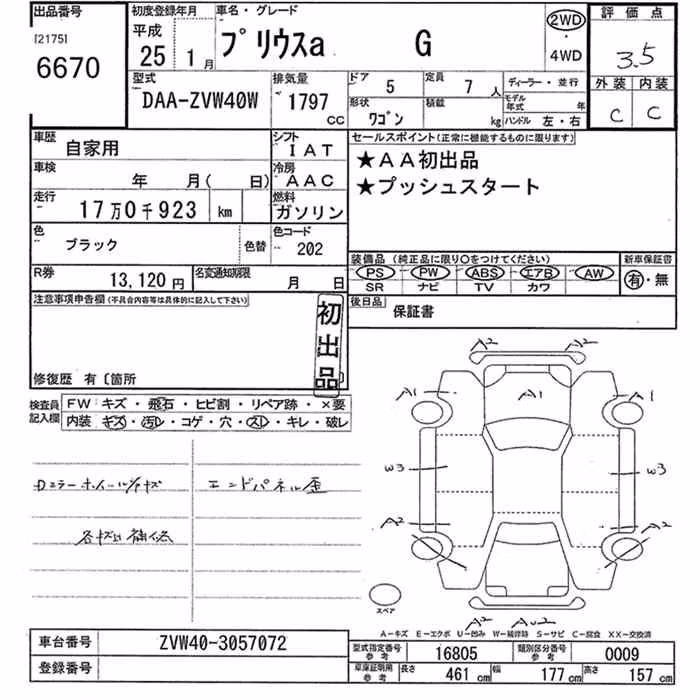 出品番号
[2175]
6670
初度登録年月
平成
25 1月
車名・グレード
プリウスa G
2WD
・
4WD
評価点
3.5
外装 内装
C C
型式
DAA-ZVW40W
排気量
1797
CC
ドア 5
定員 7 人
ディーラー・並行
形状 ワゴン
積載 kg
モデル年式 年
ハンドル 左・右
車歴
自家用
シフト
IAT
車検
年 月( 日)
冷房
AAC
走行
17万0千923 km
燃料
ガソリン
色
ブラック
色替
色コード
202
R券
13,120円
名変通知期限
月 日
セールスポイント(正常に機能するものに限ります)
★AA初出品
★プッシュスタート
装備品 (純正品に限り○をつけてください)
PS PW ABS エアB AW
SR ナビ TV カワ
新車保証書
有・無
後日品
保証書
注意事項申告欄(不具合内容等は具体的に記入して下さい)
初出品
修復歴 有〔箇所
検査員記入欄
FW キズ・飛石・ヒビ割・リペア跡・×要
内装 キズ・汚レ・コゲ・穴・スレ・キレ・破レ
エンドパネル歪
各キズ凹 補修
A2 A2
A1 A1 A1
W3 W3
A2 A2
A2 AU2
スペア
A－キズ E－エクボ U－凹み W－補修跡 S－サビ C－腐食 XX－交換済
車台番号
ZVW40-3057072
登録番号
型式指定番号 参考
16805
類別区分番号 参考
0009
車庫証明用 参考
長さ 461 cm
幅 177 cm
高さ 157 cm